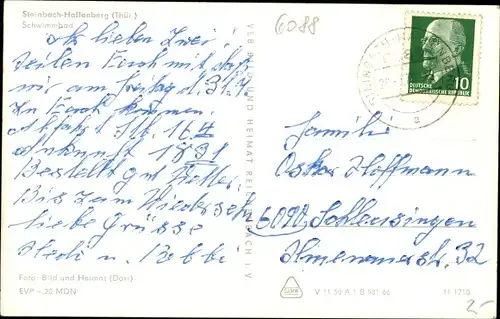 Steinbach-Hallenberg (Thür.)
Schwimmbad
6088
Ihr lieben Zwei!
teilen Euch mit daß
wir am Freitag d. 31.7.
zu Euch kommen.
Abfahrt Stb. 16
Ankunft 18 31
Bestellt gut Wetter.
Bis zum Wiedersehn
liebe Grüsse
Hedi u.
Foto: Bild und Heimat (Dorn)
EVP -,20 MDN
VEB BILD UND HEIMAT REICHENBACH I. V.
10
DEUTSCHE
DEMOKRATISCHE REPUBLIK
a
Familie
Oskar Hoffmann
6020 Schleusingen
Ilmenauerstr. 32
V 11 50 A 1 B 901 66
11 1710
2,-